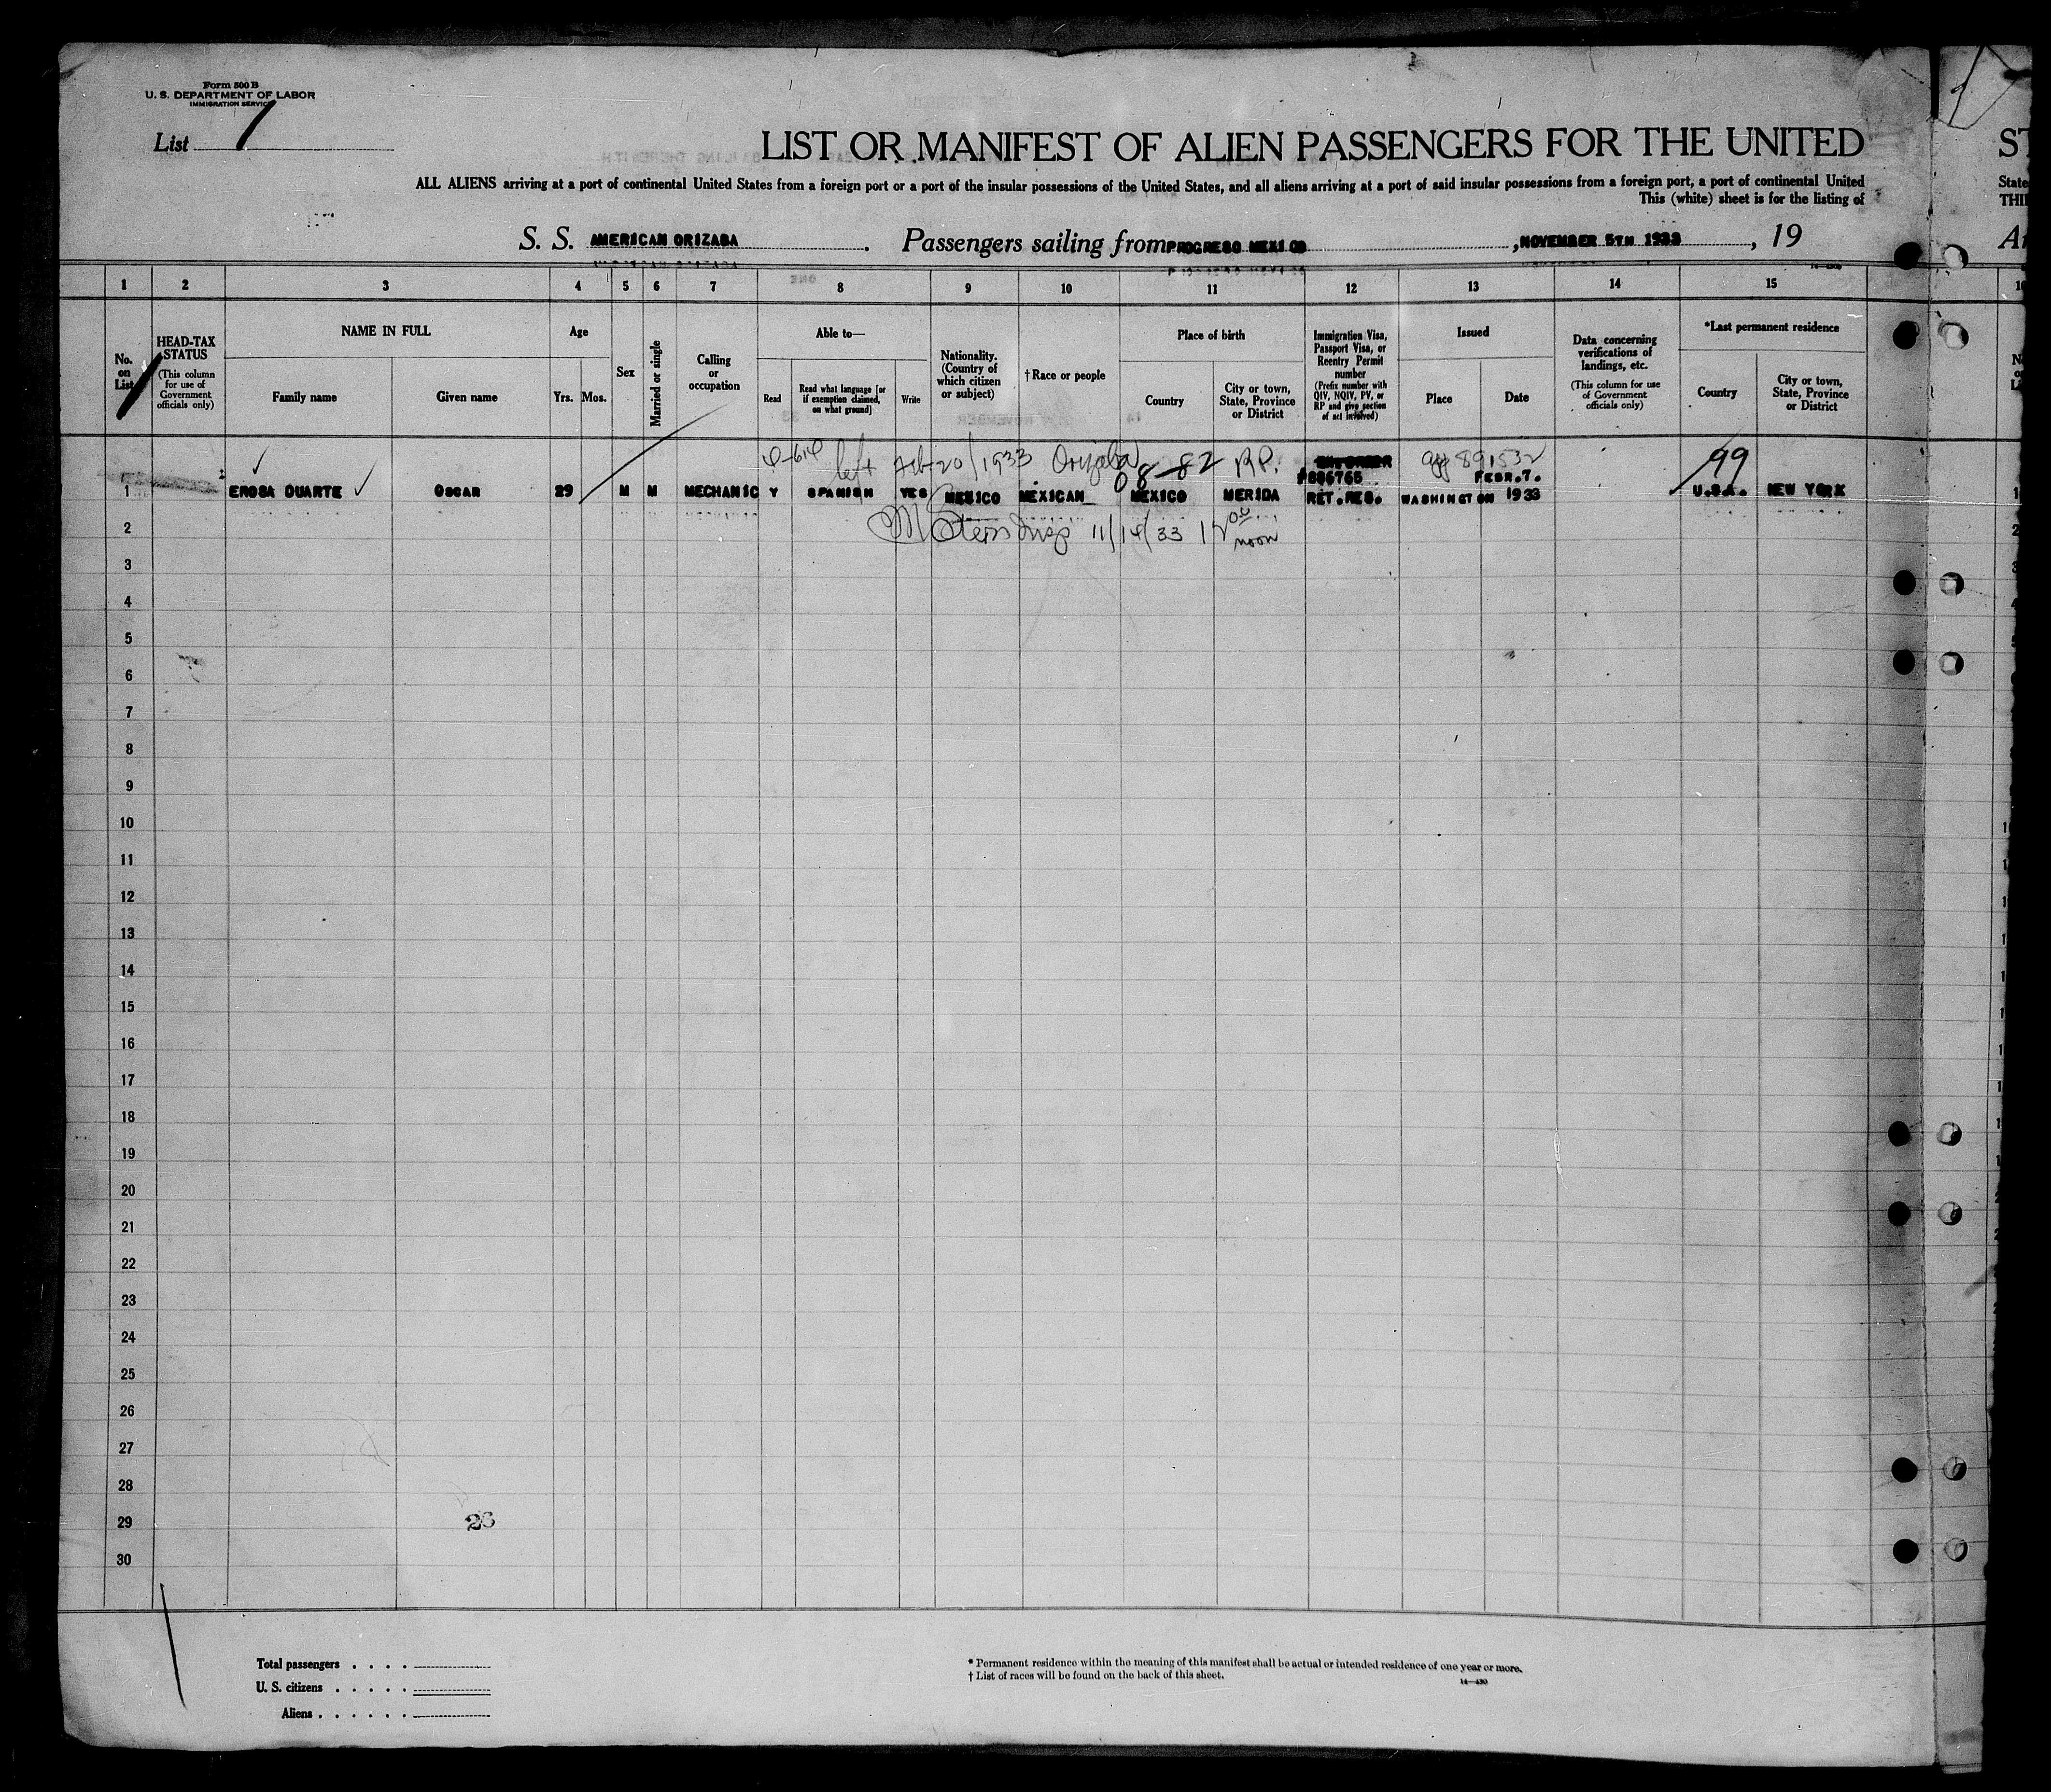 Form 500 B
U. S. DEPARTMENT OF LABOR
IMMIGRATION SERVICE
List 1
LIST OR MANIFEST OF ALIEN PASSENGERS FOR THE UNITED
ST
ALL ALIENS arriving at a port of continental United States from a foreign port or a port of the insular possessions of the United States, and all aliens arriving at a port of said insular possessions from a foreign port, a port of continental United
State
This (white) sheet is for the listing of
S. S. AMERICAN ORIZABA. Passengers sailing from PROGRESO MEXICO, NOVEMBER 5TH 1933, 19
1 2 3 4 5 6 7 8 9 10 11 12 13 14 15
No. on List
HEAD-TAX STATUS
(This column for use of Government officials only)
NAME IN FULL
Family name
Given name
Age
Yrs. Mos.
Sex
Married or single
Calling or occupation
Able to—
Read
Read what language [or if exemption claimed, on what ground]
Write
Nationality. (Country of which citizen or subject)
†Race or people
Place of birth
Country
City or town, State, Province or District
Immigration Visa, Passport Visa, or Reentry Permit number
(Prefix number with QIV, NQIV, PV, or RP and give section of act involved)
Issued
Place
Date
Data concerning verifications of landings, etc.
(This column for use of Government officials only)
*Last permanent residence
Country
City or town, State, Province or District
left Feb-20/1933 Orizaba R.P. 891532 99
1 EROSA DUARTE OSCAR 29 M M MECHANIC Y SPANISH YES MEXICO MEXICAN MEXICO MERIDA #886765 RET.RES. WASHINGTON FEBR.7. 1933 U.S.A. NEW YORK
M Stern Insp 11/14/33 12 00 noon
2
3
4
5
6
7
8
9
10
11
12
13
14
15
16
17
18
19
20
21
22
23
24
25
26
27
28
29
30
26
Total passengers . . . .
U. S. citizens . . . . .
Aliens . . . . . .
* Permanent residence within the meaning of this manifest shall be actual or intended residence of one year or more.
† List of races will be found on the back of this sheet.
14—430